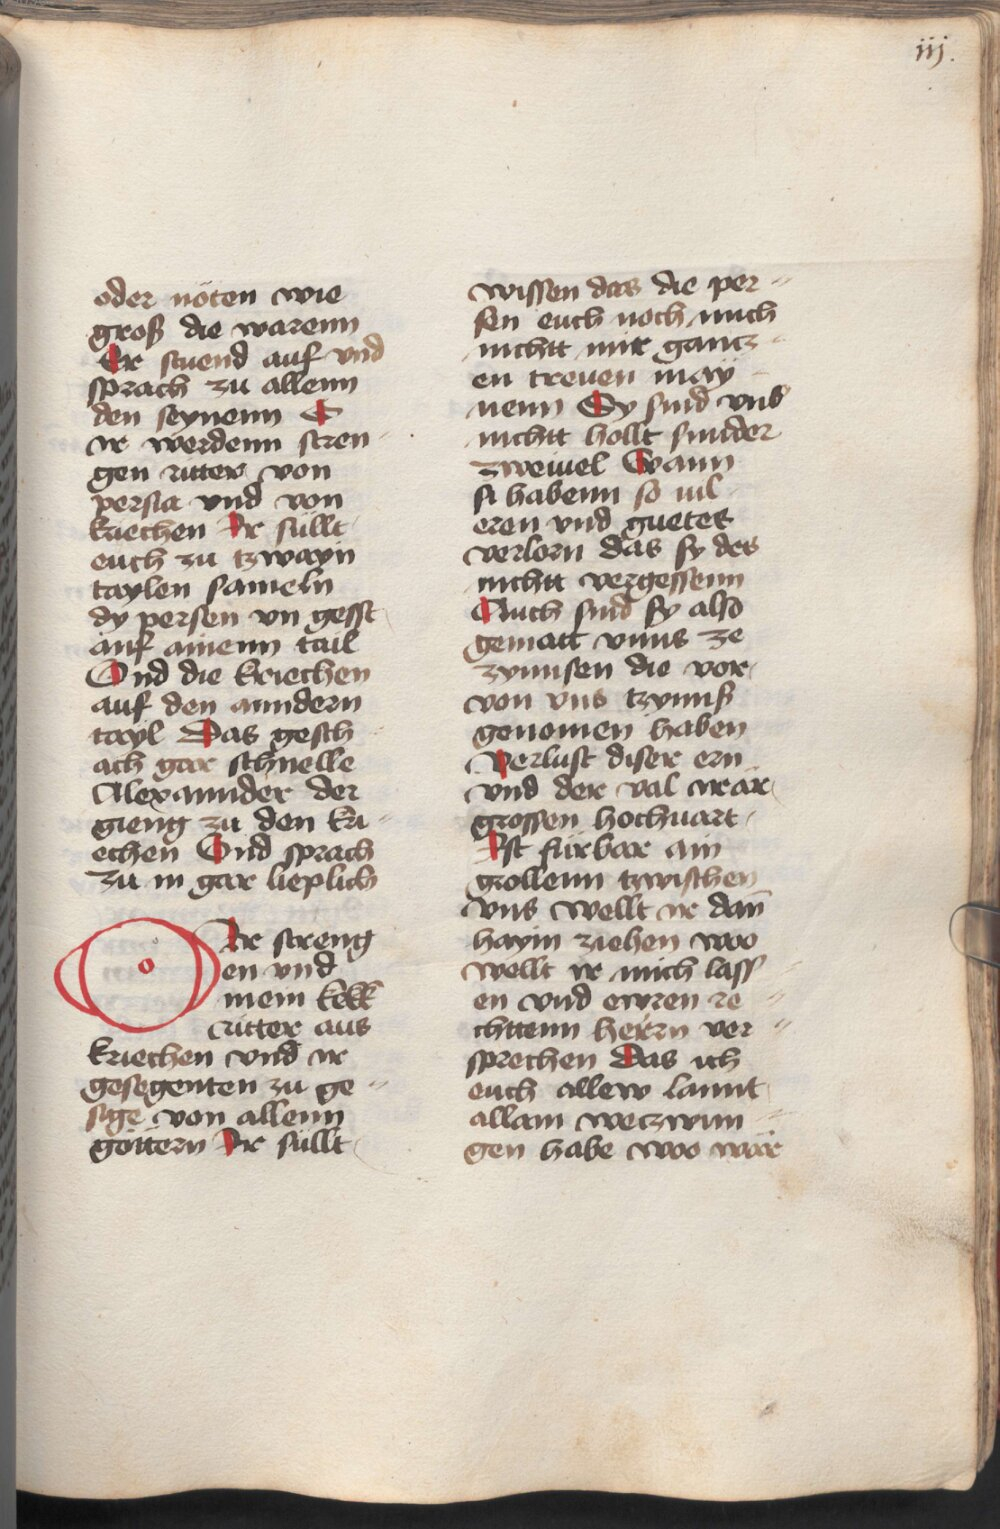 iij.
oder nöten wie
groß die warenn
Er stuend auf vnd
sprach zu allenn
den seynenn E
ir werdenn stren
gen ritter von
persia vnd von
kriechen Ir süllt
euch zu tzwayn
taylen sameln
dy persen vn gesst
auf ainenn tail
Vnd die kriechen
auf den anndern
tayl Das gesch
ach gar schnelle
Alexannder der
gieng zu den kri
echen Vnd sprach
zu in gar lieplich
O Ir streng
en vnd
mein kekk
ritter aus
kriechen vnd ir
gesegenten zu ge
sige von allenn
göttern Ir süllt
wissen das die per
sen euch noch mich
nichtt mit gantz
en treuen may
nenn Sy sind vns
nichtt hollt sunder
zweiuel Wann
si habenn so uil
eren vnd guetes
verlorn das sy des
nichtt vergessenn
Auch sind sy also
gematt vnns ze
zynnsen die vor
von vns tzynnß
genomen haben
Verlust diser ern
vnd der val irar
grossen hochuart
Ist fürbar ain
grollenn tzwischen
vns Wellt ir dan̄
hayin ziehen woo
wellt ir mich lass
en vnd ewren re
chttenn herrn ver
sprechen Das ich
euch allew lannt
allain weczwun
gen habe woo wär